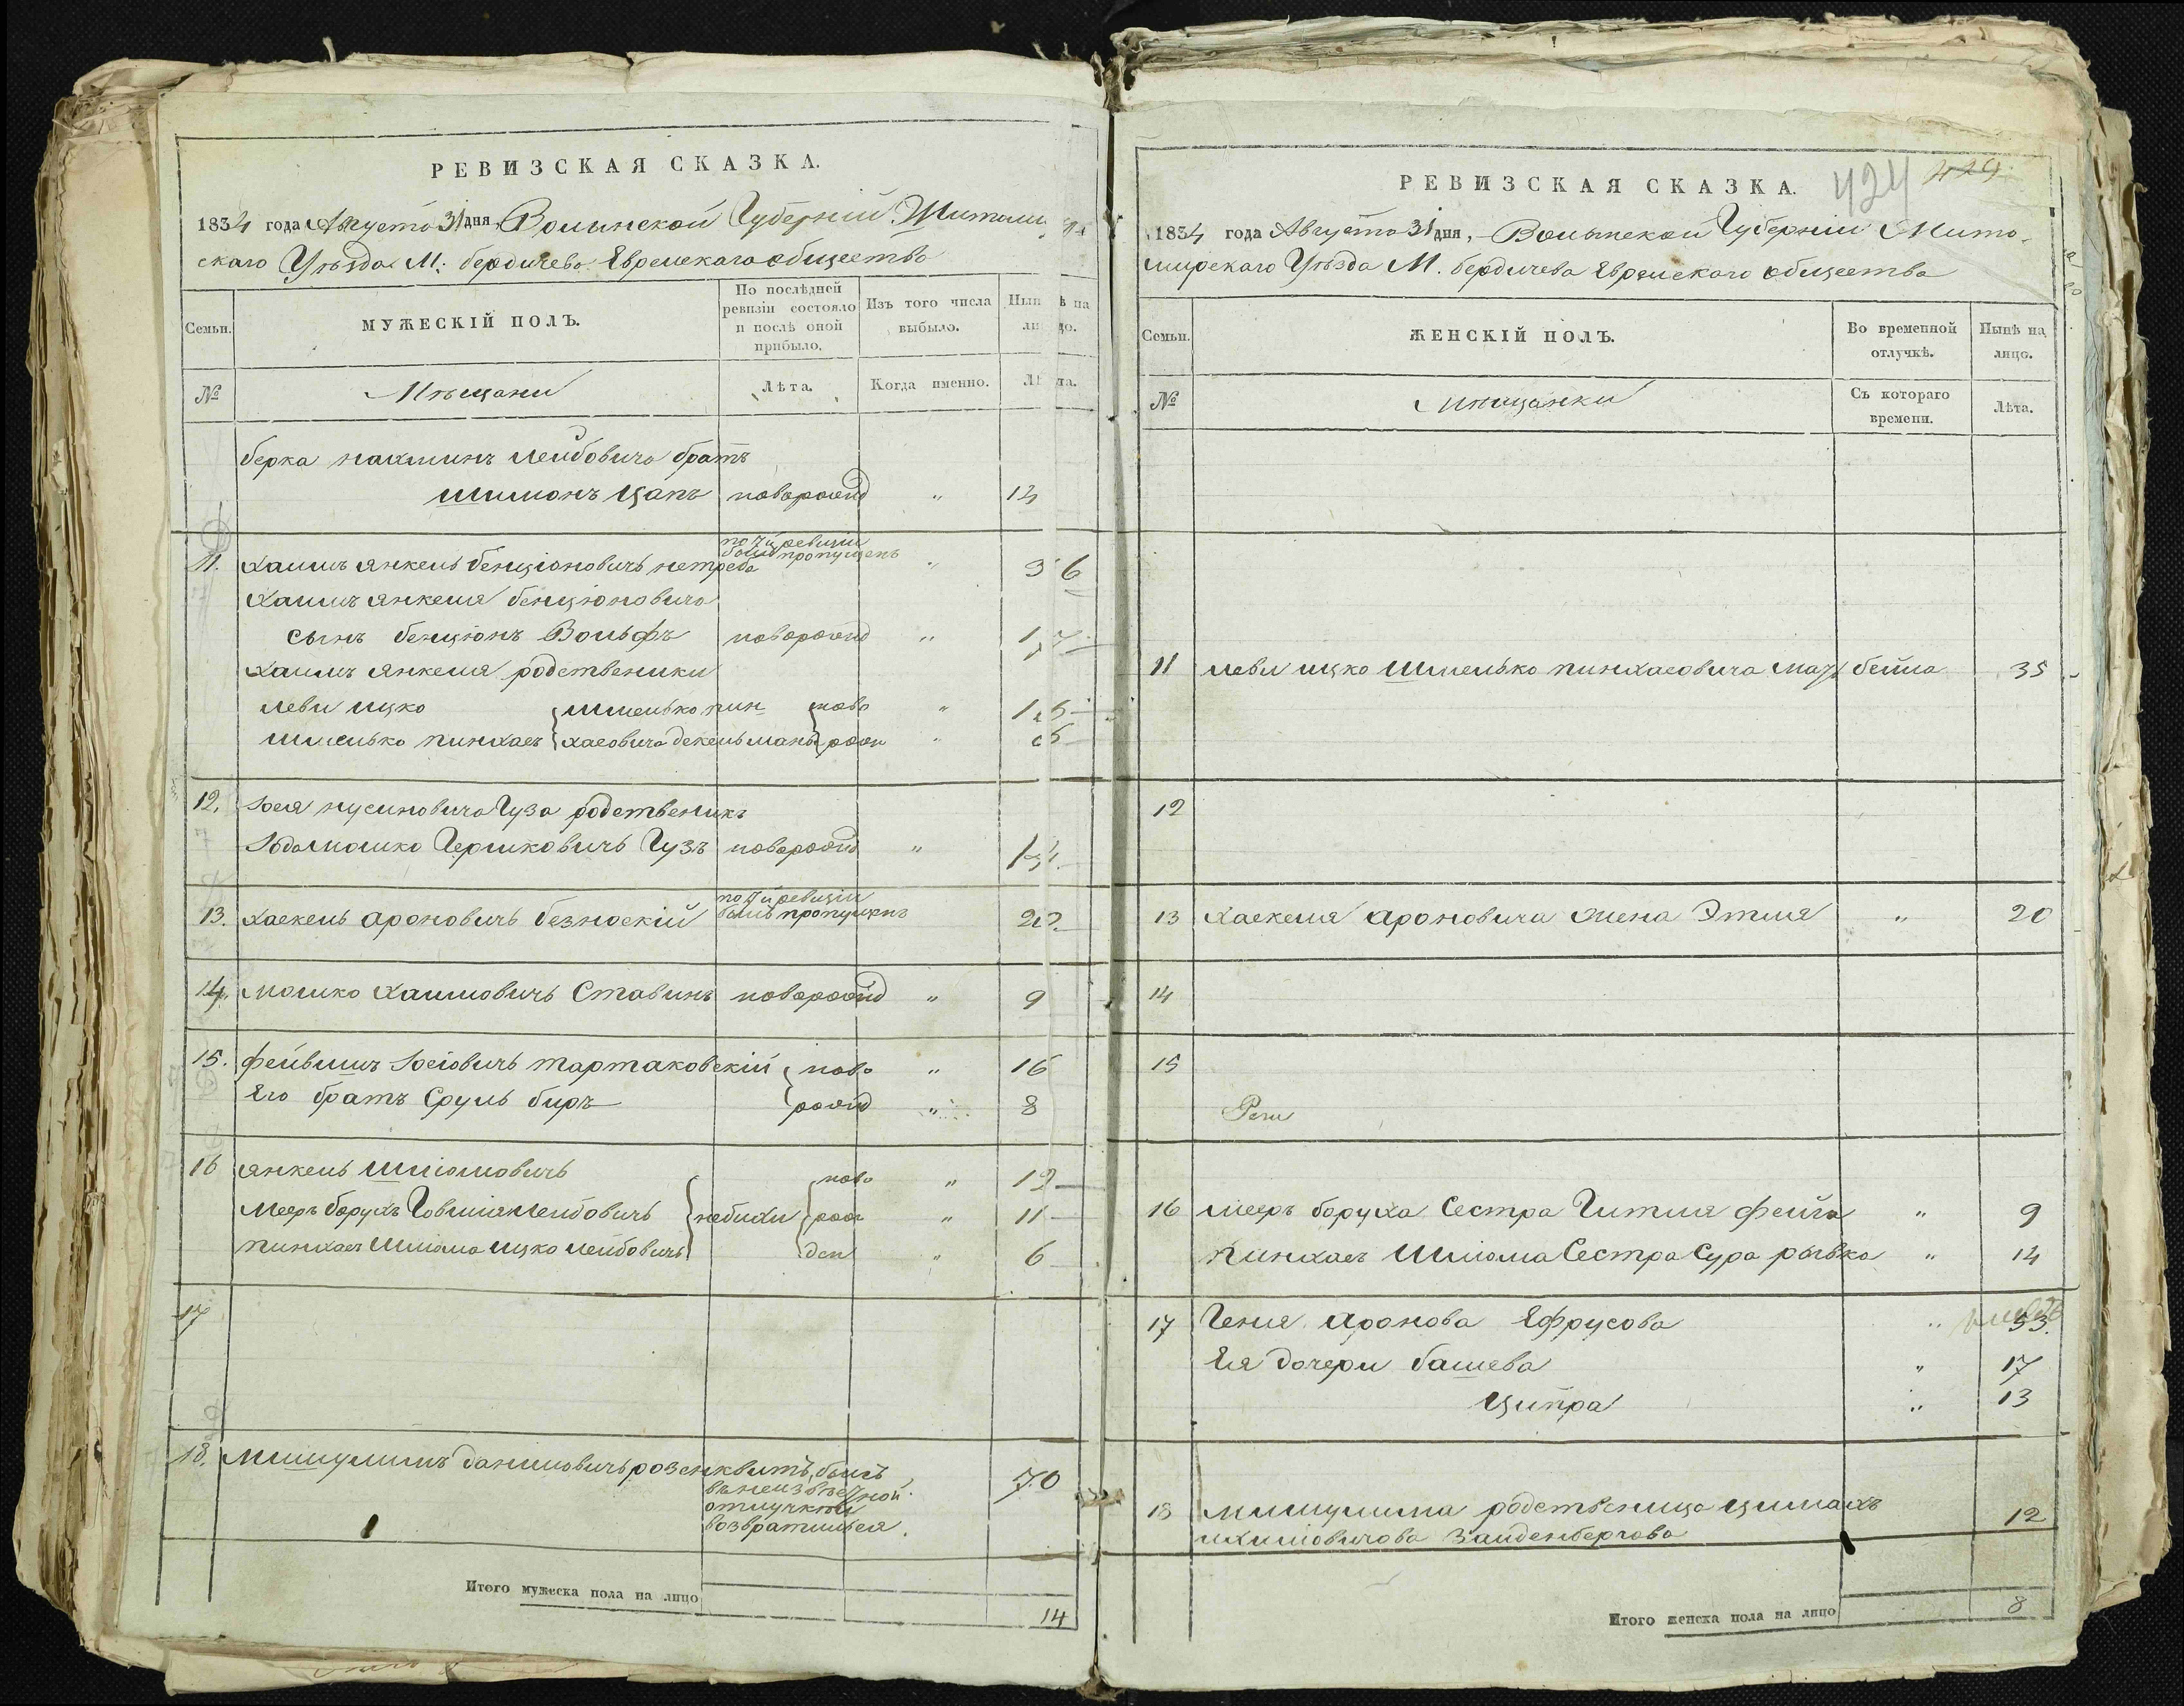 РЕВИЗСКАЯ СКАЗКА.
1834 года Августа 31 дня, Волынской Губернiи Житоми
скаго Уѣзда М: бердичева Еврейскаго общества
Семьи.
МУЖЕСКІЙ ПОЛЪ.
По послѣдней ревизіи состояло и послѣ оной прибыло.
Изъ того числа выбыло.
Нынѣ на лицо.
№
Мѣщани
Лѣта.
Когда именно.
Лѣта.
берка нахминъ лейбовича братъ
Шимонъ Цапъ новорожд " 14
11. хаимъ янкель бенціоновичъ нетреба по 7й ревизіи былъ пропущенъ " 36
хаимъ янкеля бенціоновича
сынъ бенціонъ Вольфъ новорожд " 17
хаимъ янкеля родственики
леви ицко шмелько пин ново " 15
шмелько пинхасъ хасовича декельманъ рожд " 5
12. Іося нусиновича Гуза родственикъ
мошко Гершковичъ Гузъ новорожд "
13. хаскель ароновичъ безноскій по 7й ревизіи былъ пропущенъ 22
14. мошко хаимовичъ Ставинъ новорожд " 9
15. фейвишъ Іосіовичъ тартаковскій ново " 16
Его братъ Сруль биръ рожд " 8
16 янкель Шліомовичъ ново " 12
Мееръ борухъ Говшія лейбовичъ рож " 11
пинхасъ Шліома ицко лейбовичъ ден " 6
17
18. Мишулимъ даниловичъ розенквитъ, былъ 70
въ неизвѣстной
отлучкѣ и
возвратился.
Итого мужеска пола на лицо
14
424
РЕВИЗСКАЯ СКАЗКА.
1834 года Августа 31 дня, Волынской Губерніи Жито-
мирскаго Уѣзда М. бердичева Еврейскаго общества
Семьи.
ЖЕНСКІЙ ПОЛЪ.
Во временной отлучкѣ.
Нынѣ на лицо.
№
Мѣщанки
Съ котораго времени.
Лѣта.
11 леви ицко Шмелько пинхасовича мать бейла 35
12
13 хаскеля ароновича жена Этля " 20
14
15
16 мееръ боруха Сестра Гитля фейга " 9
пинхасъ Шліома Сестра Сура рывка " 14
17 Геня аронова Ефрусова " 53.
Ея дочери башева " 17
Ципра " 13
18 мишулима родственица цималъ 12
Зайденбергова
Итого женска пола на лицо
8